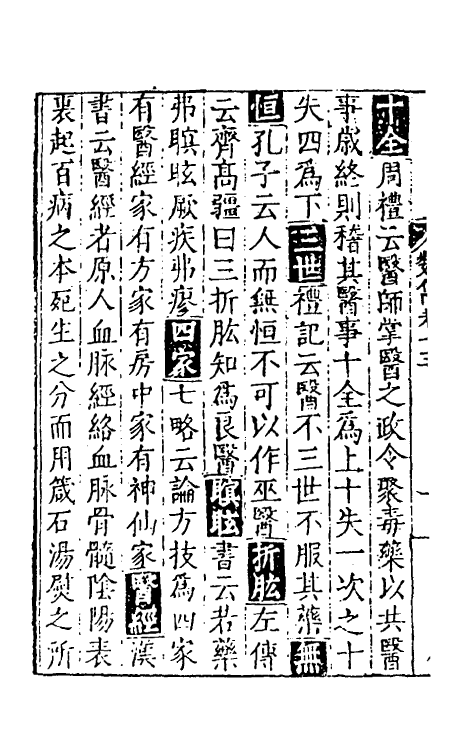 十全周禮云醫師掌醫之政令聚毒藥以共醫
事歳終則稽其醫事十全爲上十失一次之十
失四爲下三世禮記云醫不三世不服其藥無
恒孔子云人而無恒不可以作巫醫折肱左傳
云齊髙彊曰三折肱知爲良醫瞑眩書云若藥
弗瞑眩厥疾弗瘳四家七略云論方技爲四家
有醫經家有方家有房中家有神仙家醫經漢
書云醫經者原人血脉經絡血脉骨髓陰陽表
裏起百病之本死生之分而用箴石湯熨之所